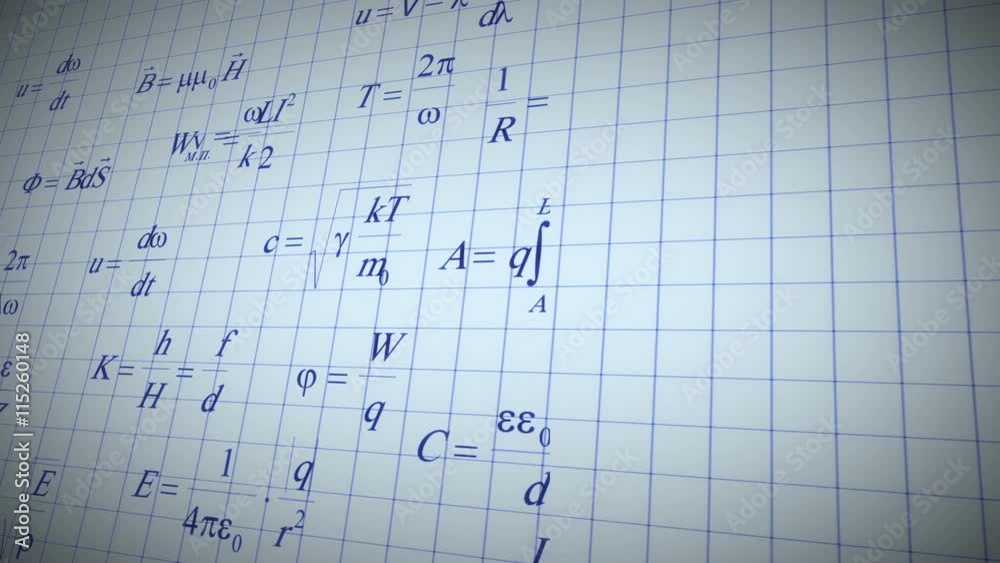 u = V − λ / dλ
u = dω/dt
B⃗ = μμ₀ H⃗
T = 2π/ω
1/R =
W м.п. = ωLI²/k2
Φ = B⃗dS⃗
2π/ω
u = dω/dt
c = √γ kT/m₀
A = q∫ L A
ε
K = h/H = f/d
φ = W/q
C = εε₀/d
E
E = 1/4πε₀ · q/r²
Adobe Stock | #115260148
Adobe Stock